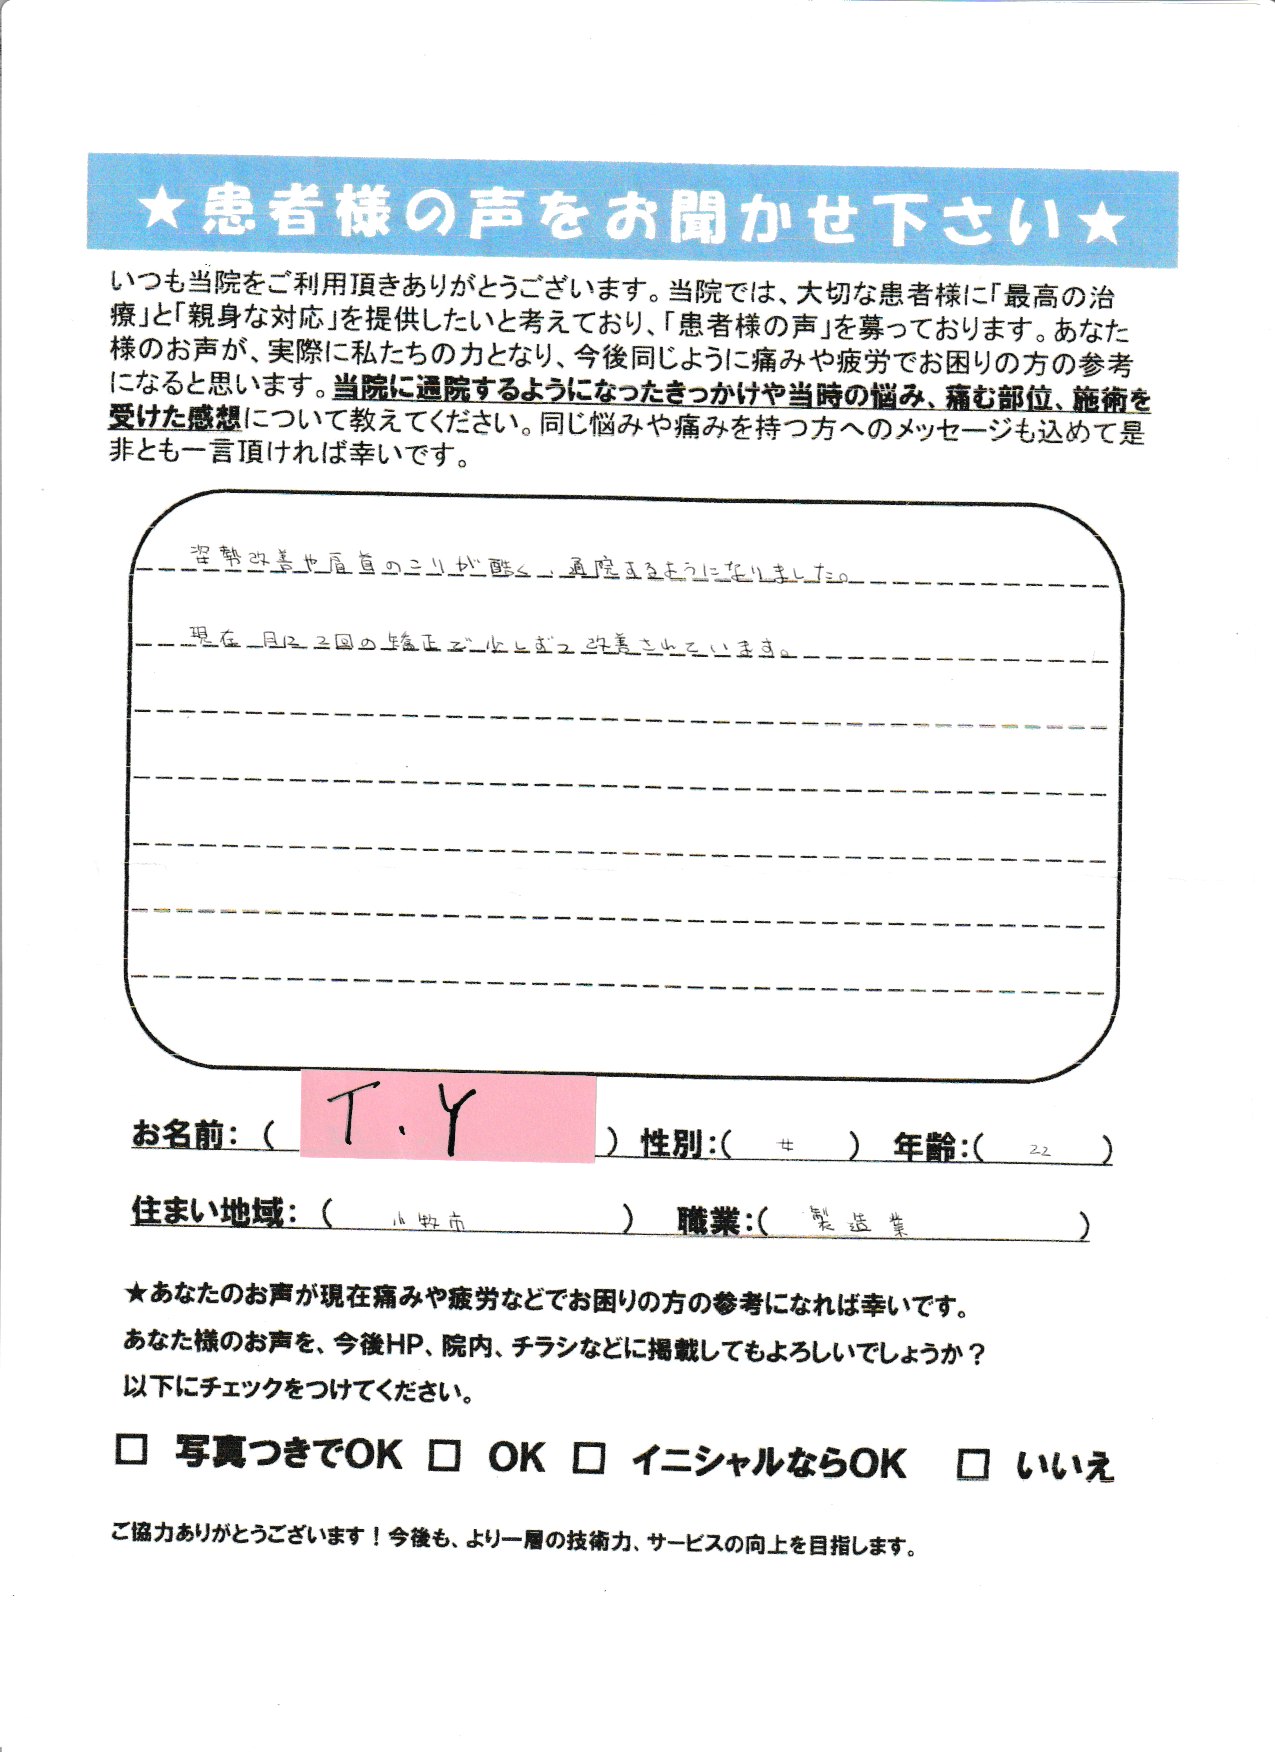 ★患者様の声をお聞かせ下さい★
いつも当院をご利用頂きありがとうございます。当院では、大切な患者様に「最高の治
療」と「親身な対応」を提供したいと考えており、「患者様の声」を募っております。あなた
様のお声が、実際に私たちの力となり、今後同じように痛みや疲労でお困りの方の参考
になると思います。当院に通院するようになったきっかけや当時の悩み、痛む部位、施術を
受けた感想について教えてください。同じ悩みや痛みを持つ方へのメッセージも込めて是
非とも一言頂ければ幸いです。
姿勢改善や肩首のこりが酷く、通院するようになりました。
現在 月に2回の矯正で少しずつ改善されています。
お名前：（ T.Y ） 性別：（ 女 ） 年齢：（ 22 ）
住まい地域：（ 小牧市 ） 職業：（ 製造業 ）
★あなたのお声が現在痛みや疲労などでお困りの方の参考になれば幸いです。
あなた様のお声を、今後HP、院内、チラシなどに掲載してもよろしいでしょうか？
以下にチェックをつけてください。
□ 写真つきでOK □ OK □ イニシャルならOK □ いいえ
ご協力ありがとうございます！今後も、より一層の技術力、サービスの向上を目指します。